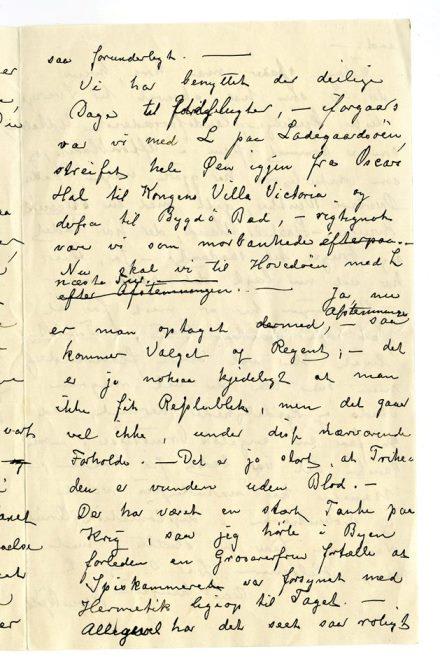 saa forunderligt. —
Vi har benyttet de deilige
Dage til Fodflugter, — Forgaars
var vi med L paa Ladegaardsöen,
streifet hele Øen igjen fra Oscars
Hal til Kongens Villa Victoria og
derfra til Bygdö Bad, — rigtignok
vare vi som mörbankede efterpaa. —
Nu skal vi til Hovedöen med L
næste
efter Afstemningen. — Ja nu
Afstemninge
er man optaget dermed, — saa
kommer Valget af Regent; — det
er jo noksaa kjedeligt at man
ikke fik Republikk, men det gaar
vel ikke, under disse nærværende
Forholde. — Det er jo stort, at Frihe-
den er vunden uden Blod. —
Der har været en stærk Tanke paa
Krig, saa jeg hörte i Byen
forleden en Grosererfrue fortælle at
Spiskammeret var forsynet med
Hermetik ligeop til Taget. —
Alligevel har det seet saa roligt
er
vort
aanet
else
er